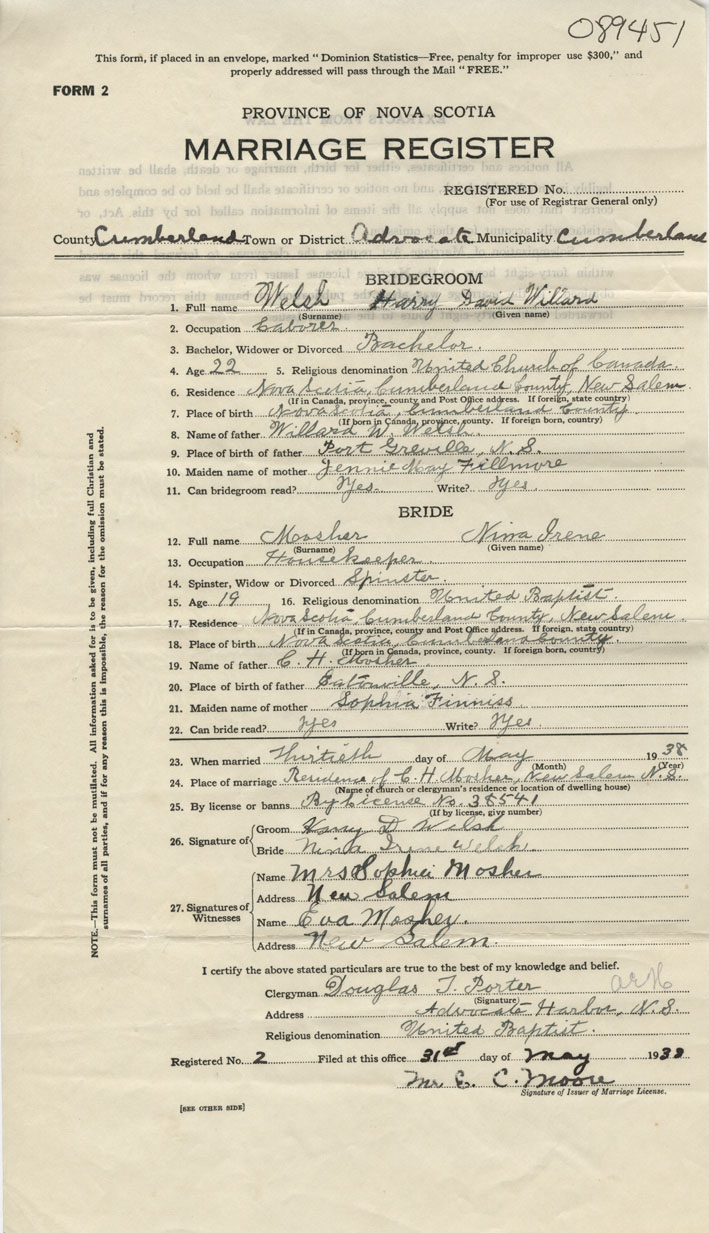 089451
This form, if placed in an envelope, marked "Dominion Statistics—Free, penalty for improper use $300," and
properly addressed will pass through the Mail "FREE."
FORM 2
PROVINCE OF NOVA SCOTIA
MARRIAGE REGISTER
REGISTERED No.
(For use of Registrar General only)
County Cumberland Town or District Advocate Municipality Cumberland
BRIDEGROOM
1. Full name Welsh Harry David Willard
(Surname) (Given name)
2. Occupation Laborer
3. Bachelor, Widower or Divorced Bachelor.
4. Age 22 5. Religious denomination United Church of Canada.
6. Residence Nova Scotia, Cumberland County, New Salem.
(If in Canada, province, county and Post Office address. If foreign, state country)
7. Place of birth Nova Scotia, Cumberland County.
(If born in Canada, province, county. If foreign born, country)
8. Name of father Willard W. Welsh.
9. Place of birth of father Port Greville, N.S.
10. Maiden name of mother Jennie May Fillmore
11. Can bridegroom read? Yes. Write? Yes.
BRIDE
12. Full name Mosher Nina Irene
(Surname) (Given name)
13. Occupation Housekeeper.
14. Spinster, Widow or Divorced Spinster.
15. Age 19 16. Religious denomination United Baptist.
17. Residence Nova Scotia, Cumberland County, New Salem.
(If in Canada, province, county and Post Office address. If foreign, state country)
18. Place of birth Nova Scotia, Cumberland County.
(If born in Canada, province, county. If foreign born, country)
19. Name of father C. H. Mosher
20. Place of birth of father Eatonville, N.S.
21. Maiden name of mother Sophia Finniss
22. Can bride read? Yes Write? Yes.
23. When married Thirtieth day of May 1938
(Month) (Year)
24. Place of marriage Residence of C. H. Mosher, New Salem N.S.
(Name of church or clergyman's residence or location of dwelling house)
25. By license or banns By License No. 38541
(If by license, give number)
26. Signature of Groom Harry D Welsh
Bride Nina Irene Welsh.
27. Signatures of Witnesses Name Mrs Sophia Mosher
Address New Salem
Name Eva Mosher.
Address New Salem.
I certify the above stated particulars are true to the best of my knowledge and belief.
Clergyman Douglas T. Porter
(Signature)
Address Advocate Harbor, N.S.
Religious denomination United Baptist.
Registered No. 2 Filed at this office 31st day of May 1938
Mr. E. C. Moore
Signature of Issuer of Marriage License.
[SEE OTHER SIDE]
NOTE.—This form must not be mutilated. All information asked for is to be given, including full Christian and
surnames of all parties, and if for any reason this is impossible, the reason for the omission must be stated.